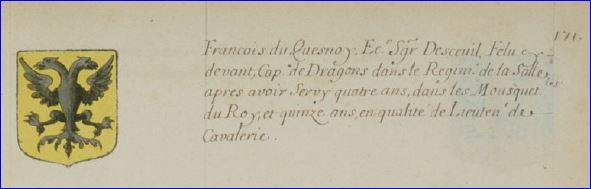 François du Quesnoy, Ec.r Sgr Desceuil, Felu cy
devant, Cap.e de Dragons dans le Regim.t de la Salle,
apres avoir Servy quatre ans, dans les Mousquet.res
du Roy, et quinze ans, en qualité de Lieuten.t de
Cavalerie.
171.